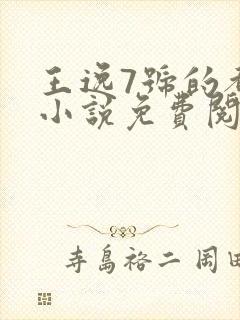 王逸7號的
小說免費閱
寺島裕二 岡田